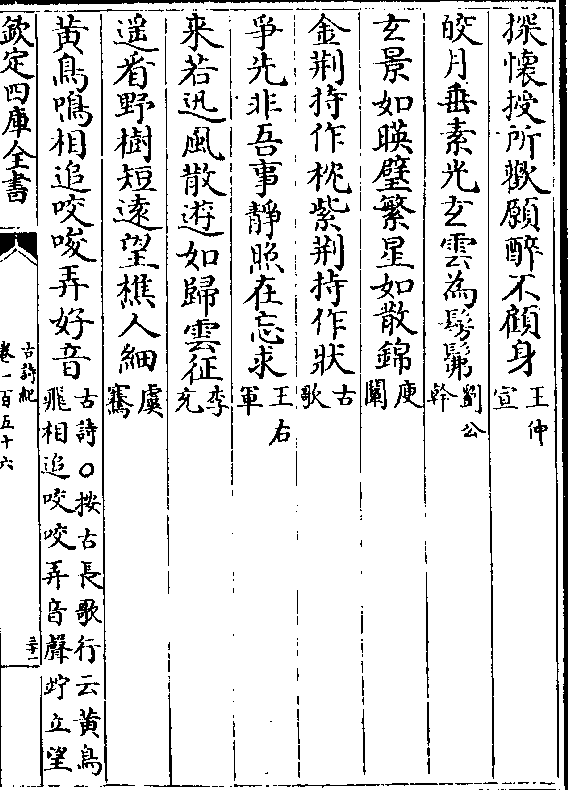 探懷授所歡願醉不顧身王仲宣
皎月垂素光玄雲為髣髴劉公幹
玄景如暎璧繁星如散錦庾闡
金荆持作枕紫荆持作牀古歌
爭先非吾事靜照在忘求王右軍
来若迅風散逝如歸雲征李充
遥看野樹短遠望樵人細虞騫
黄鳥鳴相追咬咬弄好音古詩○按古長歌行云黄鳥飛相追咬咬弄音聲竚立望
欽定四庫全書
古詩紀
卷一百五十六
三十一